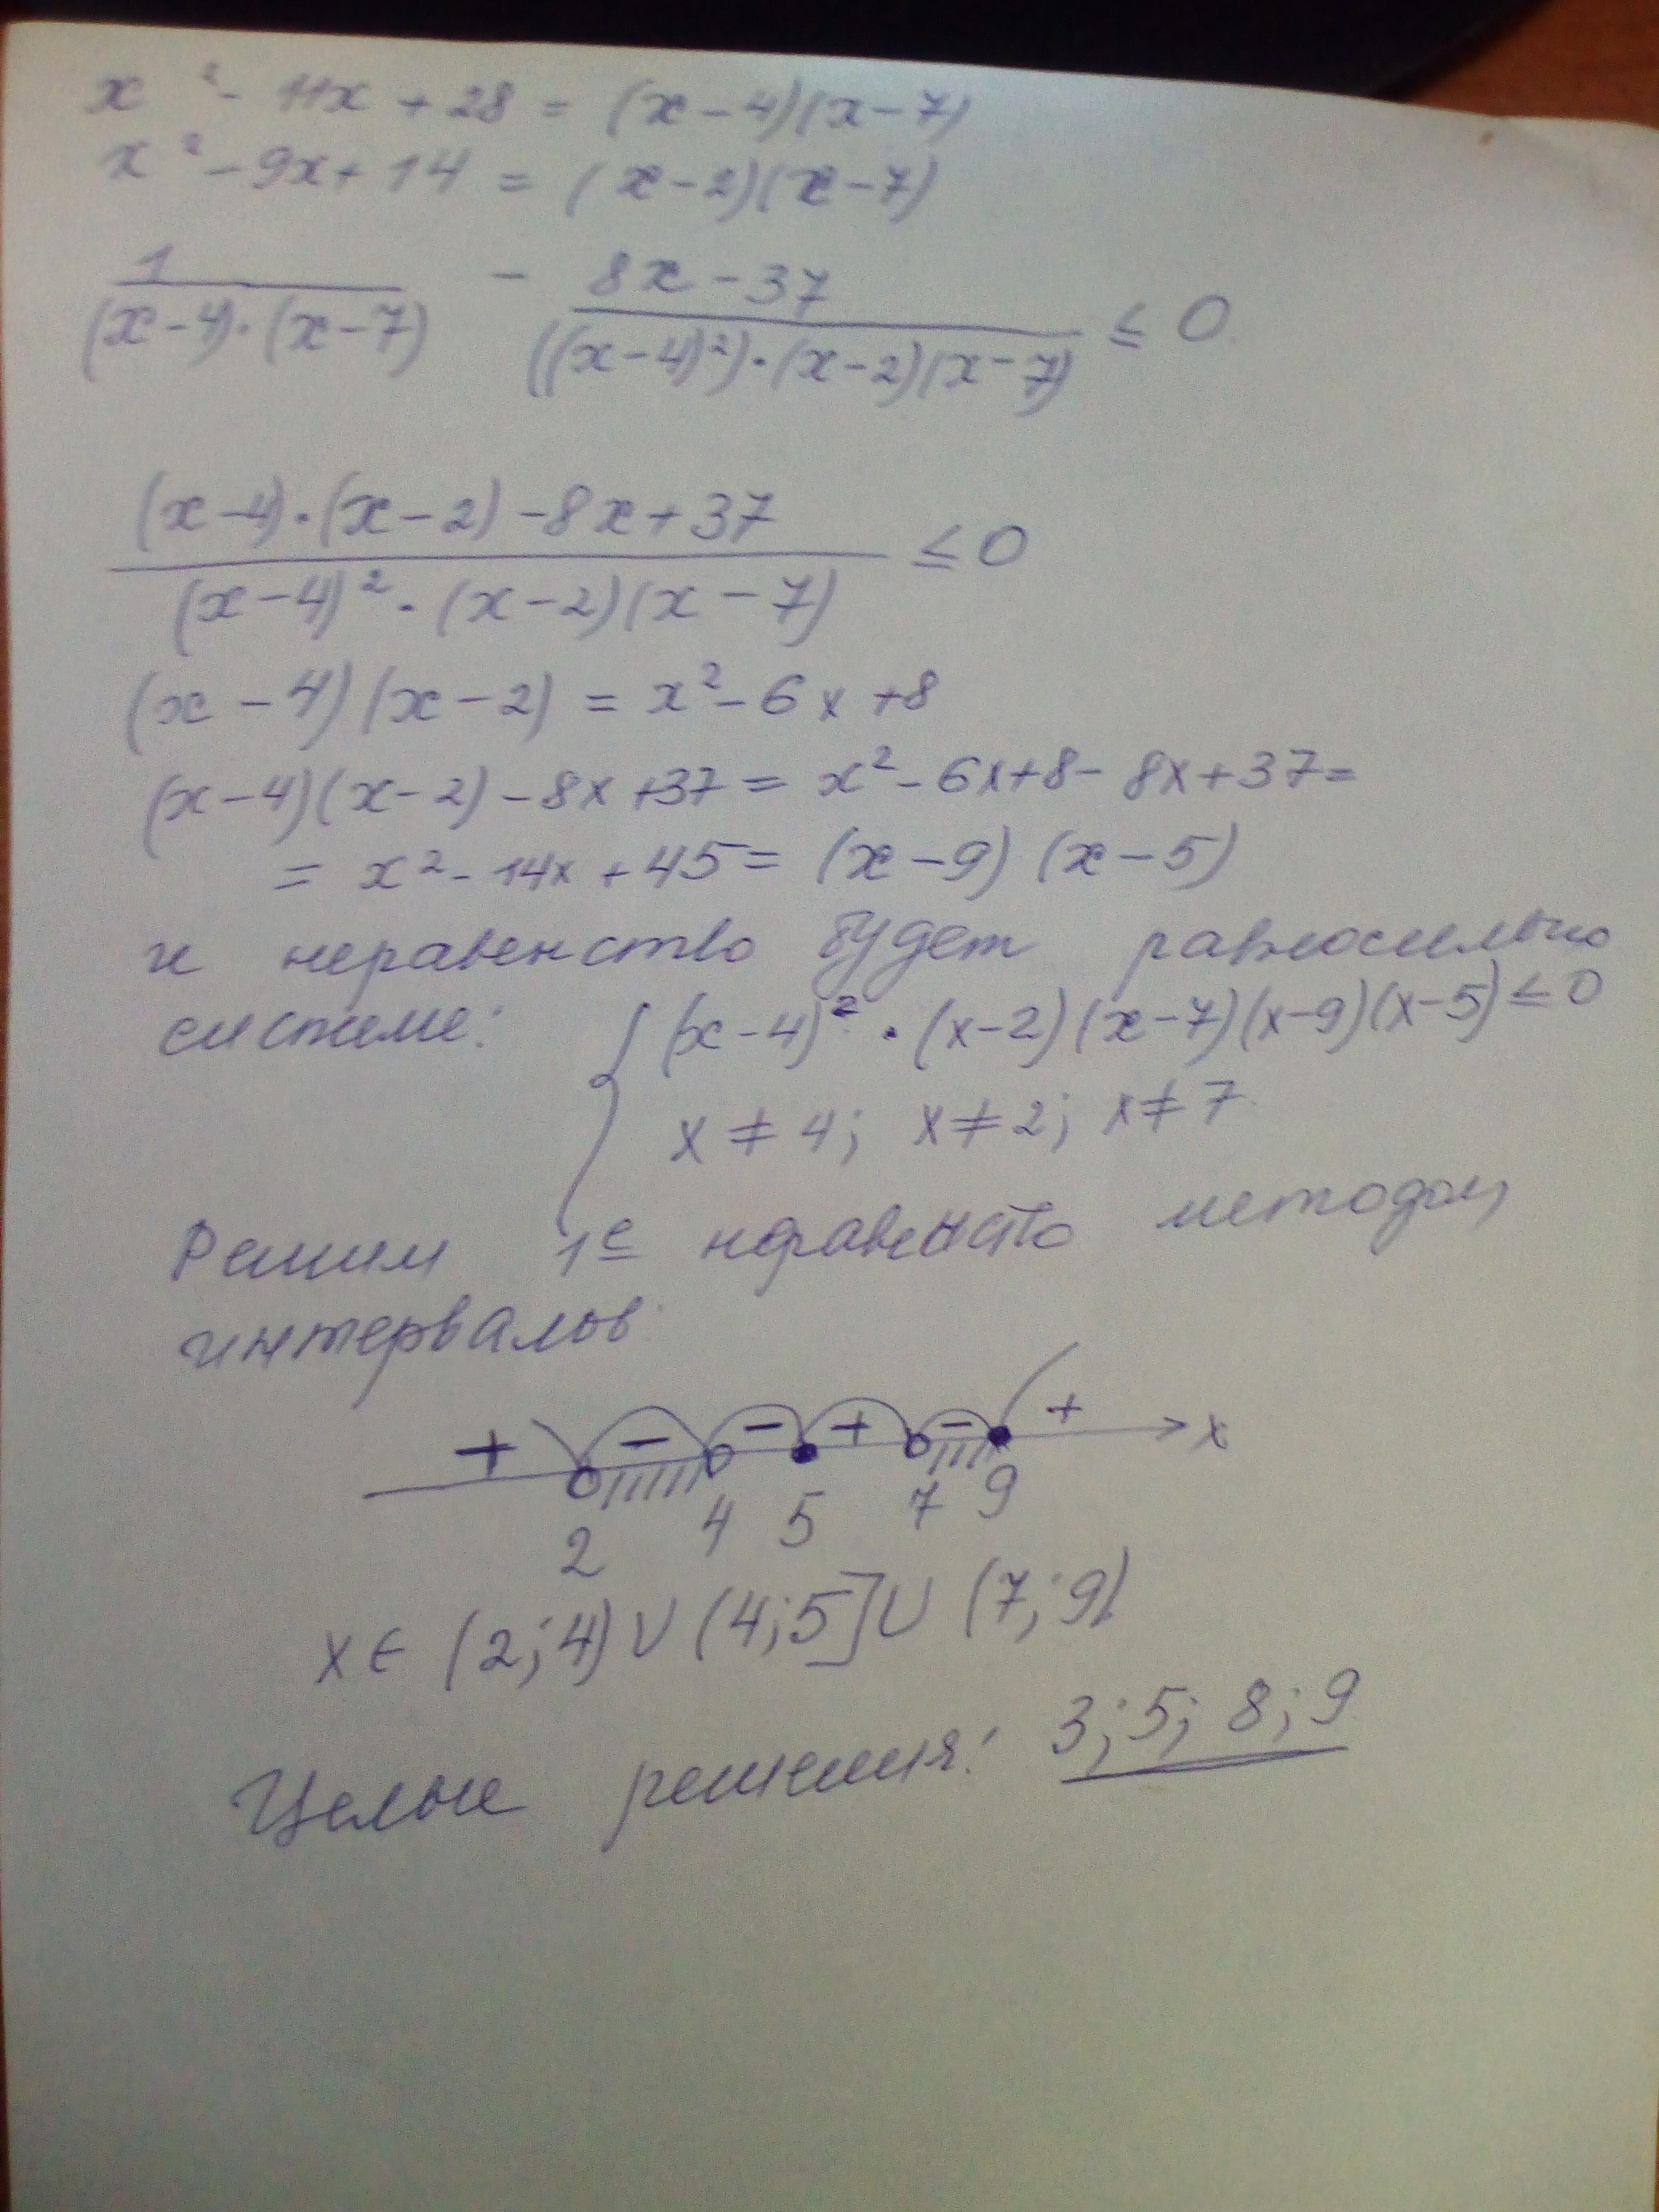 x² - 11x + 28 = (x-4)(x-7)
x² - 9x + 14 = (x-2)(x-7)
1 / (x-4)·(x-7) - 8x-37 / ((x-4)²)·(x-2)(x-7) ≤ 0
(x-4)·(x-2)-8x+37 / (x-4)²·(x-2)(x-7) ≤ 0
(x-4)(x-2) = x²-6x+8
(x-4)(x-2)-8x+37 = x²-6x+8-8x+37=
= x²-14x+45= (x-9)(x-5)
и неравенство будет равносильно
системе: { (x-4)²·(x-2)(x-7)(x-9)(x-5)≤0
x≠4; x≠2; x≠7
Решим 1е неравенство методом
интервалов
+ - - + - + x
2 4 5 7 9
x∈(2;4)∪(4;5]∪(7;9)
Целые решения: 3; 5; 8; 9